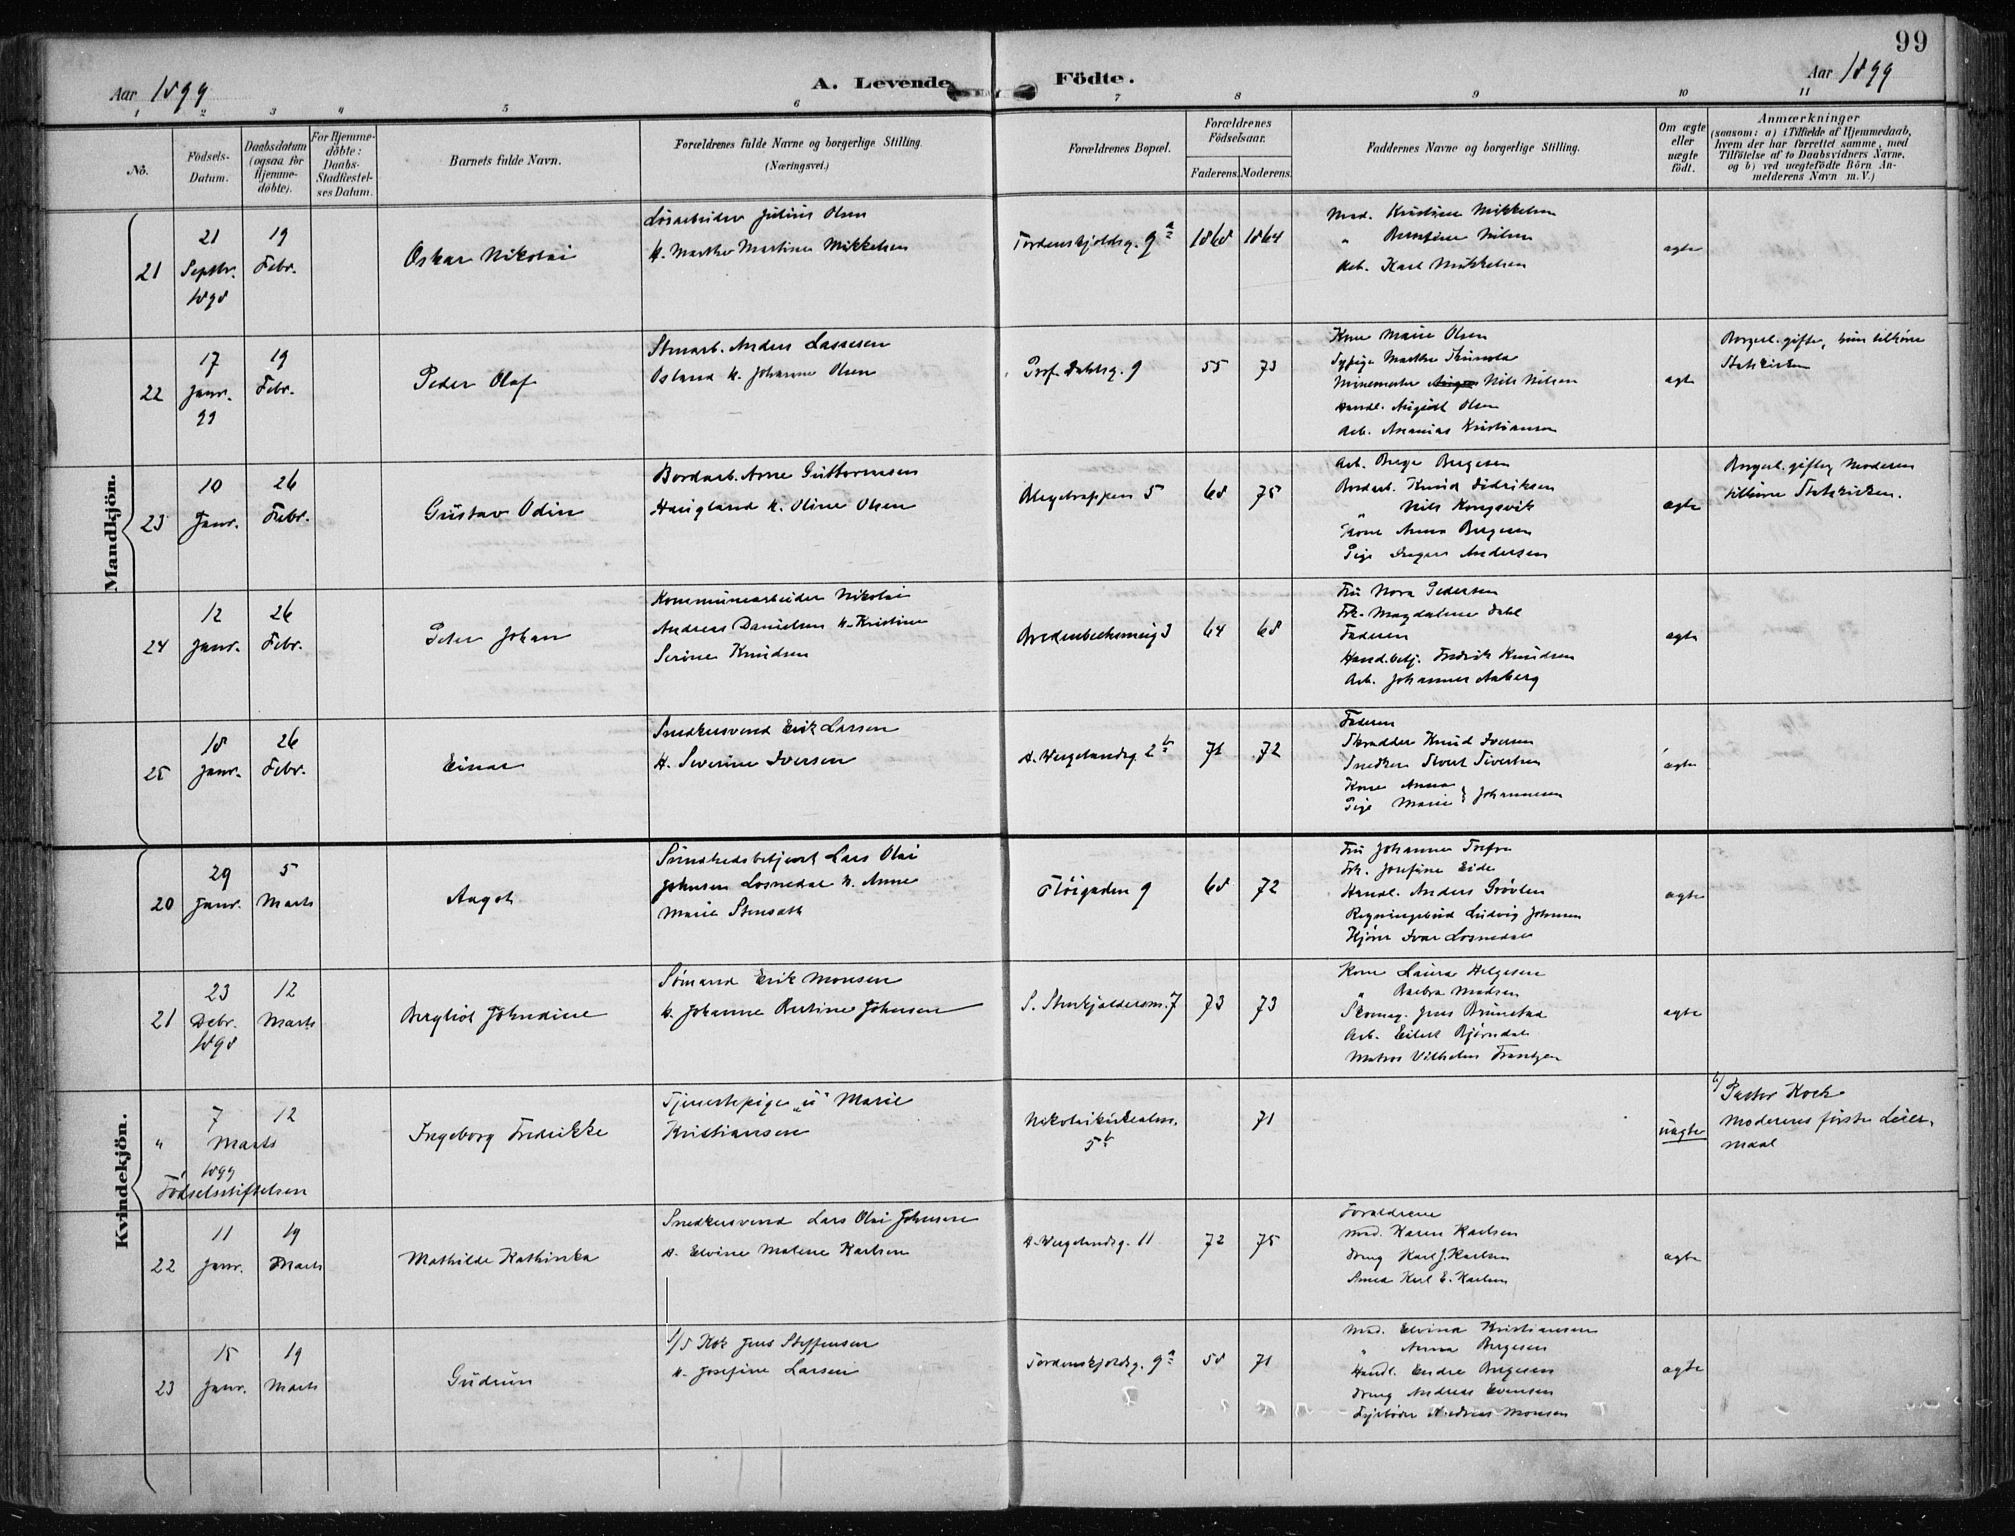 99
Aar 1899
A. Levende Födte.
Aar 1899
1 2 3 4 5 6 7 8 9 10 11
No.
Födsels-Datum.
Daabsdatum (ogsaa for Hjemmedöbte).
For Hjemmedöbte: Daabs-Stadfæstelses Datum.
Barnets fulde Navn.
Forældrenes fulde Navne og borgerlige Stilling.
(Næringsvei.)
Forældrenes Bopæl.
Forældrenes Födselsaar.
Faderens. Moderens.
Faddernes Navne og borgerlige Stilling.
Om ægte eller uægte født.
Anmærkninger
(saasom: a) i Tilfælde af Hjemmedaab, hvem der har forrettet samme, med Tilföielse af to Daabsvidners Navne, og b) ved uægtefödte Börn Anmelderens Navn m. V.)
Mandkjön.
21
21 Septbr. 1898
19 Febr.
Oskar Nikolai
Løsarbeider Julius Olsen
H. Marthe Martine Mikkelsen
Tordenskjoldsg. 9 a
1868 1864
Mad. Kristine Mikkelsen
" Berntine Nilsen
Arb. Karl Mikkelsen
ægte
22
17 Janr. 99
19 Febr.
Peder Olaf
Stenarb. Anders Lassesen
Osland H. Johanne Olsen
Prof. Dahlsg. 9
55 73
Kone Marie Olsen
Sypige Marthe
Minemester Nils Nilsen
Handl. August Olsen
Arb. Ananias Kristiansen
ægte
Borgerl. gifte, hun tilhører
Statskirken
23
10 Janr.
26 Febr.
Gustav Odin
Bordarb. Arne Guttormsen
Haugland H. Oline Olsen
Blegetrappen 5
68 75
Arb. Berge Bergesen
Bordarb. Knud Didriksen
" Nils Kongsvik
Kone Anna Bergesen
Pige Andersen
ægte
Borgerl. gifte, Moderen
tilhører Statskirken.
24
12 Janr.
26 Febr.
Peter Johan
Kommunearbeider Nikolai
Andreas Danielsen H. Kristine
Serine Knudsen
Bredenbecksmug 3
64 68
Fru Nora Pedersen
Frk. Magdalene Dahl
Faderen
Hand.betj. Fredrik Knudsen
Arb. Johannes Aaberg
ægte
25
18 Janr.
26 Febr.
Einar
Snedkersvend Erik Larsen
H. Severine Iversen
H. Wergelandsg. 2 b
71 72
Faderen
Skrædder Knud Iversen
Snedker Sivert Sivertsen
Kone Anna
Pige Marie } Johannesen
ægte
Kvindekjön.
20
29 Janr.
5 Marts
Aagot
Sundhedsbetjent Lars Olai
Johnsen Losnedal H. Anne
Marie Stensæth
Fløigaden 9
68 72
Fru Johanne
Frk. Josefine Eide
Handl. Anders Grøvlen
Regningsbud Ludvig Johnsen
Kjører Ivar Losnedal
ægte
21
23 Debr. 1898
12 Marts
Bergliot Johndine
Sømand Erik Monsen
H. Johanne Bertine Johnsen
S. Stenkjeldersm. 7
73 73
Kone Laura Helgesen
" Barbra Madsen
Skomag. Jens Brunstad
Arb. Eilert Bjørndal
Matros Vilhelm Frantzen
ægte
"
7 Marts 1899
Fødselsstiftelsen
12
Ingeborg Fredrikke
Tjenestepige "u" Marie
Kristiansen
Nikolaikirkealm.
5 b
71
uægte
b/ Pastor Koch
Moderens første Leier-
maal
22
11 Janr.
19 Marts
Mathilde Kathinka
Snedkersvend Lars Olai Johnsen
H. Elvine Malene Karlsen
H. Wergelandsg. 11
72 75
Forældrene
Mad. Karen Karlsen
Dreng Karl J. Karlsen
Karl E. Karlsen
ægte
23
15 Janr.
19 Marts
Gudrun
S/S Kok Jens Steffensen
H. Josefine Larsen
Tordenskjoldsg. 9 a
58 71
Mad. Elvina Kristiansen
" Anna Bergesen
Handl. Endre Bergesen
Dreng Andreas Evensen
Fyrbøder Andreas Monsen
ægte